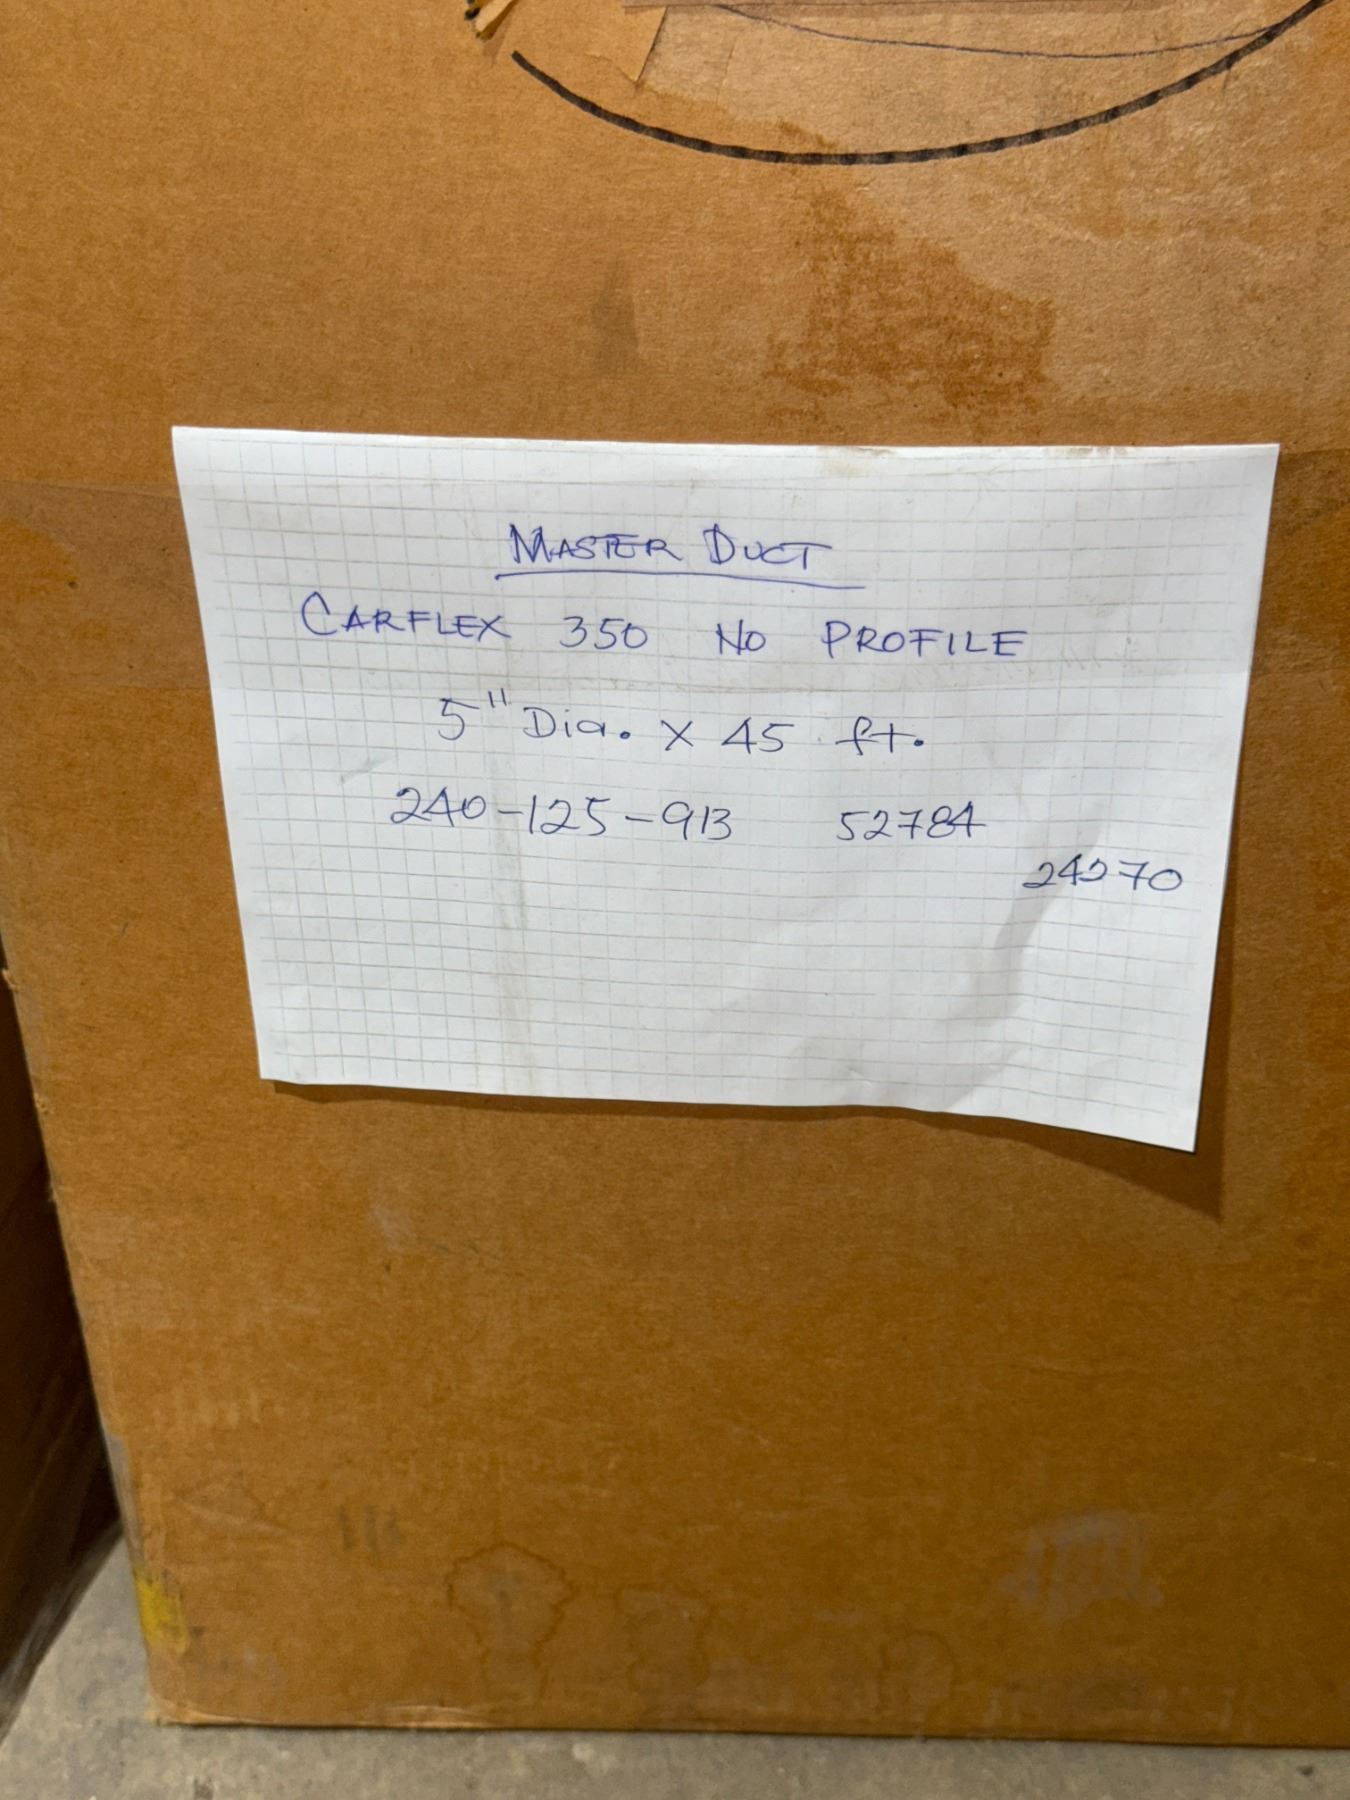 MASTER DUCT
CARFLEX 350 NO PROFILE
5" Dia. X 45 ft.
240-125-913 52784
24270